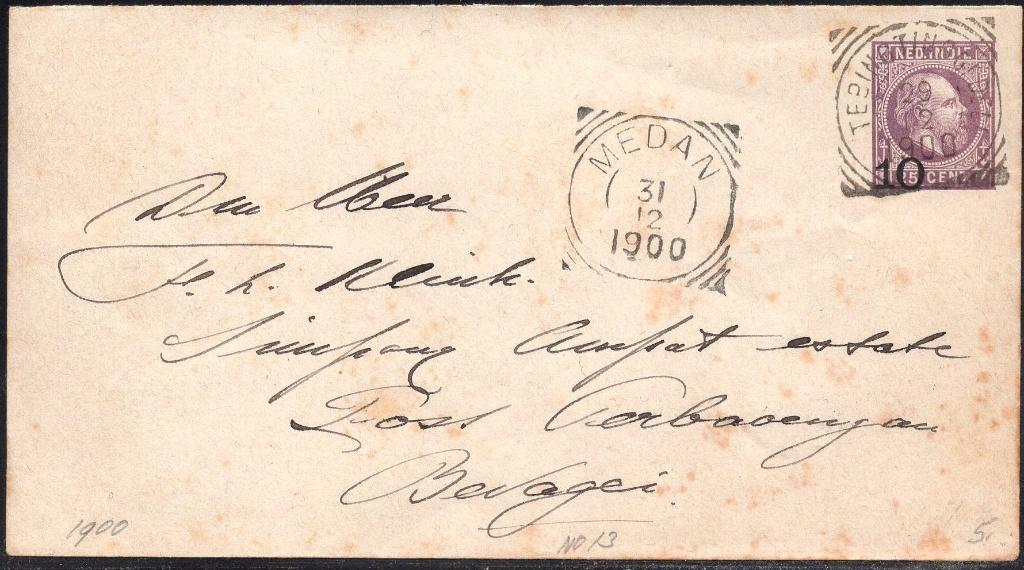 NED. INDIE
TEBING TINGGI
29
12
1900
10
CENT
MEDAN
31
12
1900
Den Heer
F. L. Klink.
Simpang Ampat estate
Post Perbaoengan
Bedagei.
1900
NO 13
5.